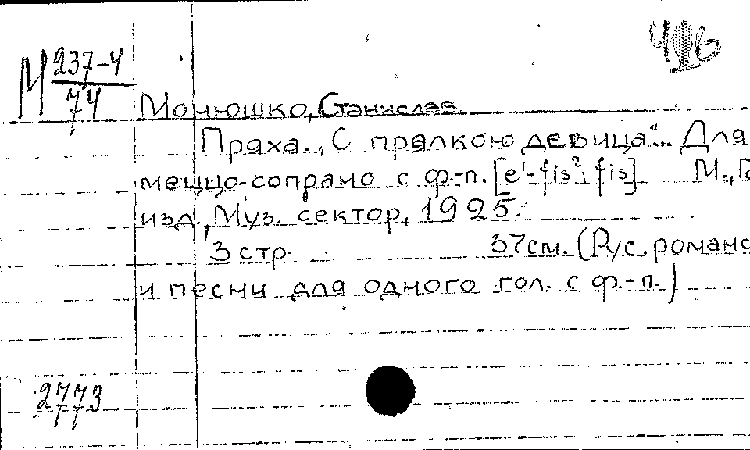 М 237-4
74
Монюшко, Станислав.
Пряха. „С прялкою девица"... Для
меццо-сопрано с ф-п. [e¹-fis² fis]. М., Г
изд., Муз. сектор, 1925.
3 стр. 37см. (Рус. романс
и песни для одного гол. с ф.-п.)
2773